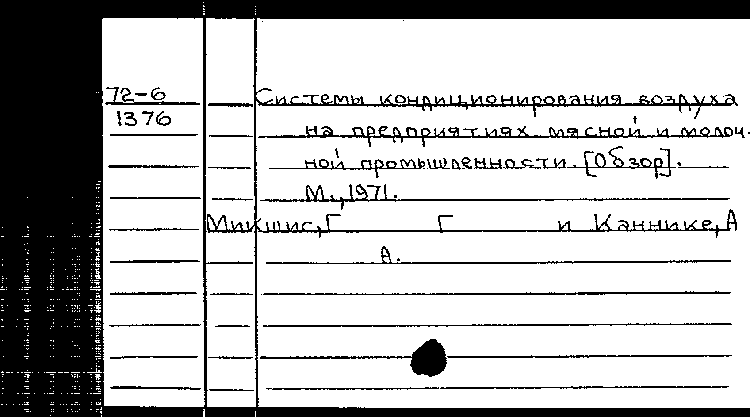 72-6
Системы кондиционирования воздуха
1376
на предприятиях мясной и молоч-
ной промышленности. [Обзор].
М., 1971.
Микшис, Г Г и Каннике, А
А.